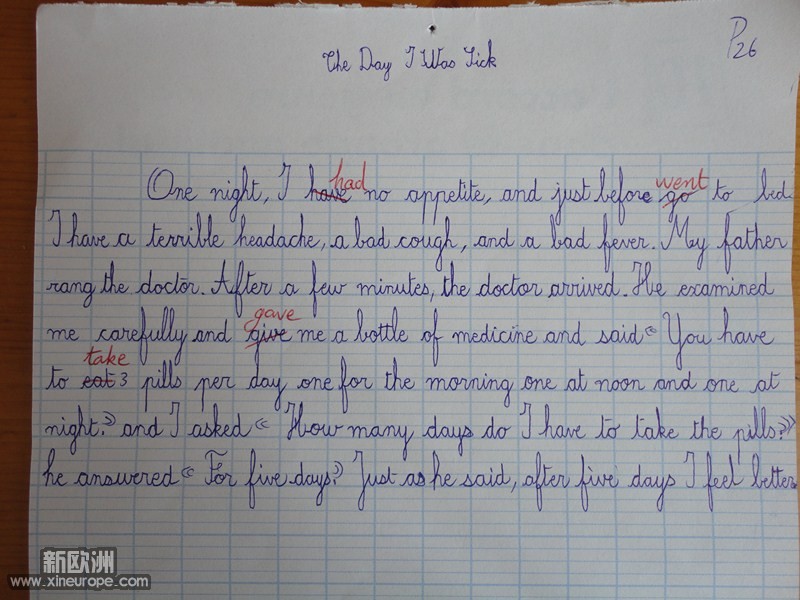 P26
The Day I Was Sick
One night, I have had no appetite, and just before go went to bed
I have a terrible headache, a bad cough, and a bad fever. My father
rang the doctor. After a few minutes, the doctor arrived. He examined
me carefully and give gave me a bottle of medicine and said « You have
to eat take 3 pills per day one for the morning one at noon and one at
night.» and I asked « How many days do I have to take the pills?»
he answered « For five days.» Just as he said, after five days I feel better.
新欧洲
www.xineurope.com